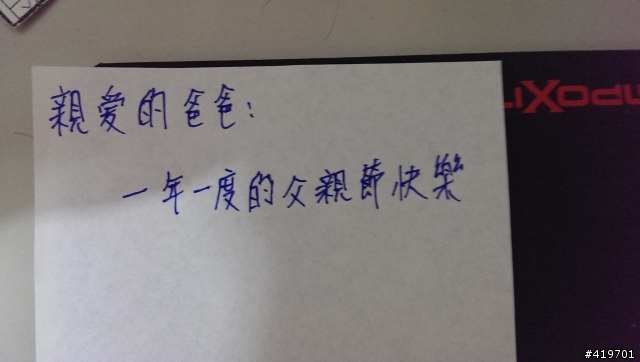 親愛的爸爸:
一年一度的父親節快樂
#419701